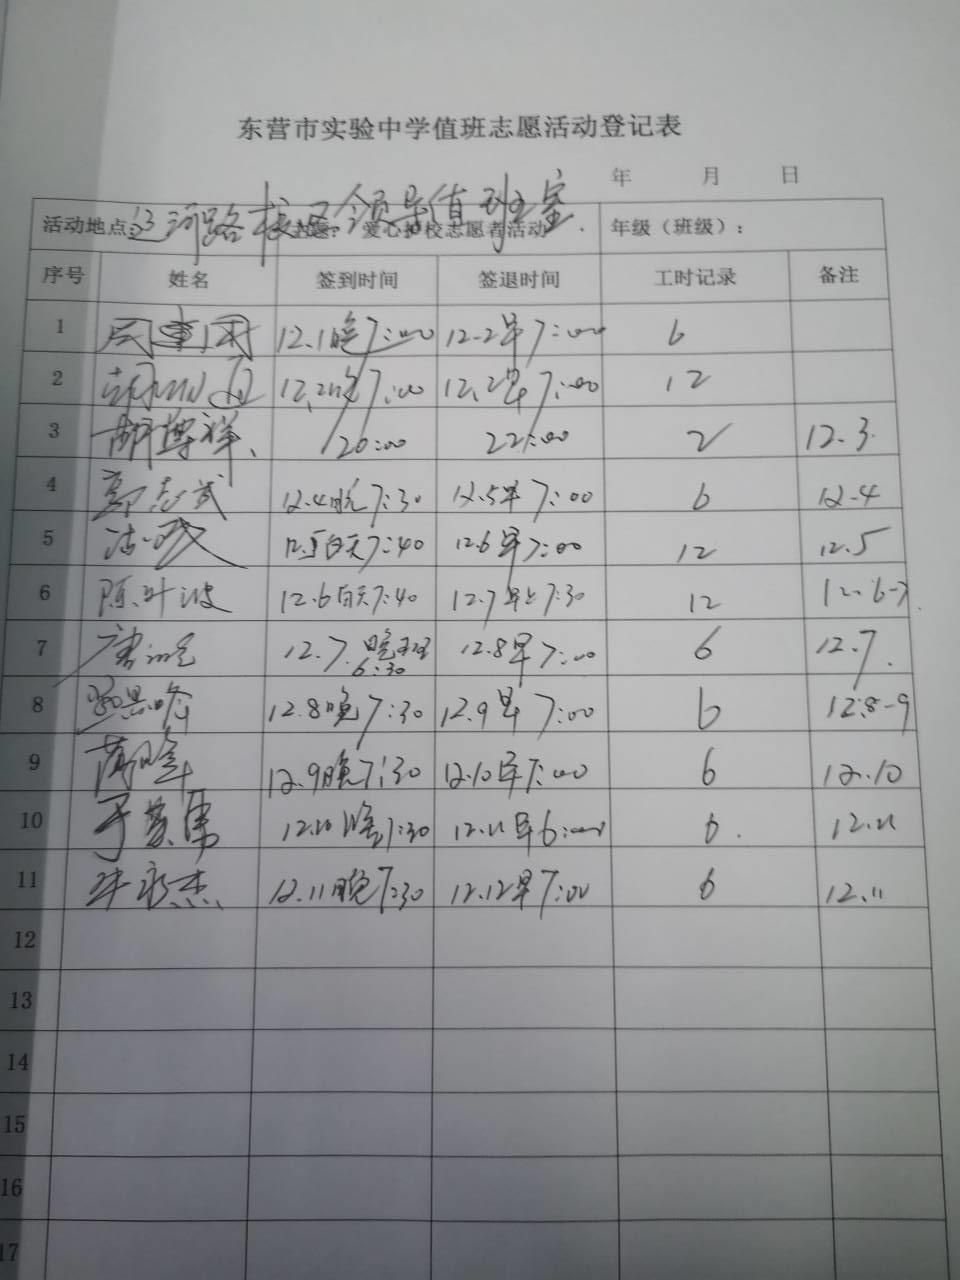 东营市实验中学值班志愿活动登记表
年 月 日
活动地点: 河路校区领导值班室 主题: 爱心护校志愿者活动 年级（班级）:
序号 姓名 签到时间 签退时间 工时记录 备注
1 12.1晚7:00 12.2早7:00 6
2 7:00 12.2早7:00 12
3 胡博祥 20:00 22:00 2 12.3
4 郭志武 12.4晚7:30 12.5早7:00 6 12-4
5 12.5白天7:40 12.6早7:00 12 12.5
6 陈叶波 12.6白天7:40 12.7早上7:30 12 12.6-7
7 12.7.晚班6:30 12.8早7:00 6 12.7.
8 12.8晚7:30 12.9早7:00 6 12.8-9
9 12.9晚7:30 12.10早7:00 6 12.10
10 12.10晚7:30 12.11早6:00 6. 12.11
11 牛永杰 12.11晚7:30 12.12早7:00 6 12.11
12
13
14
15
16
17